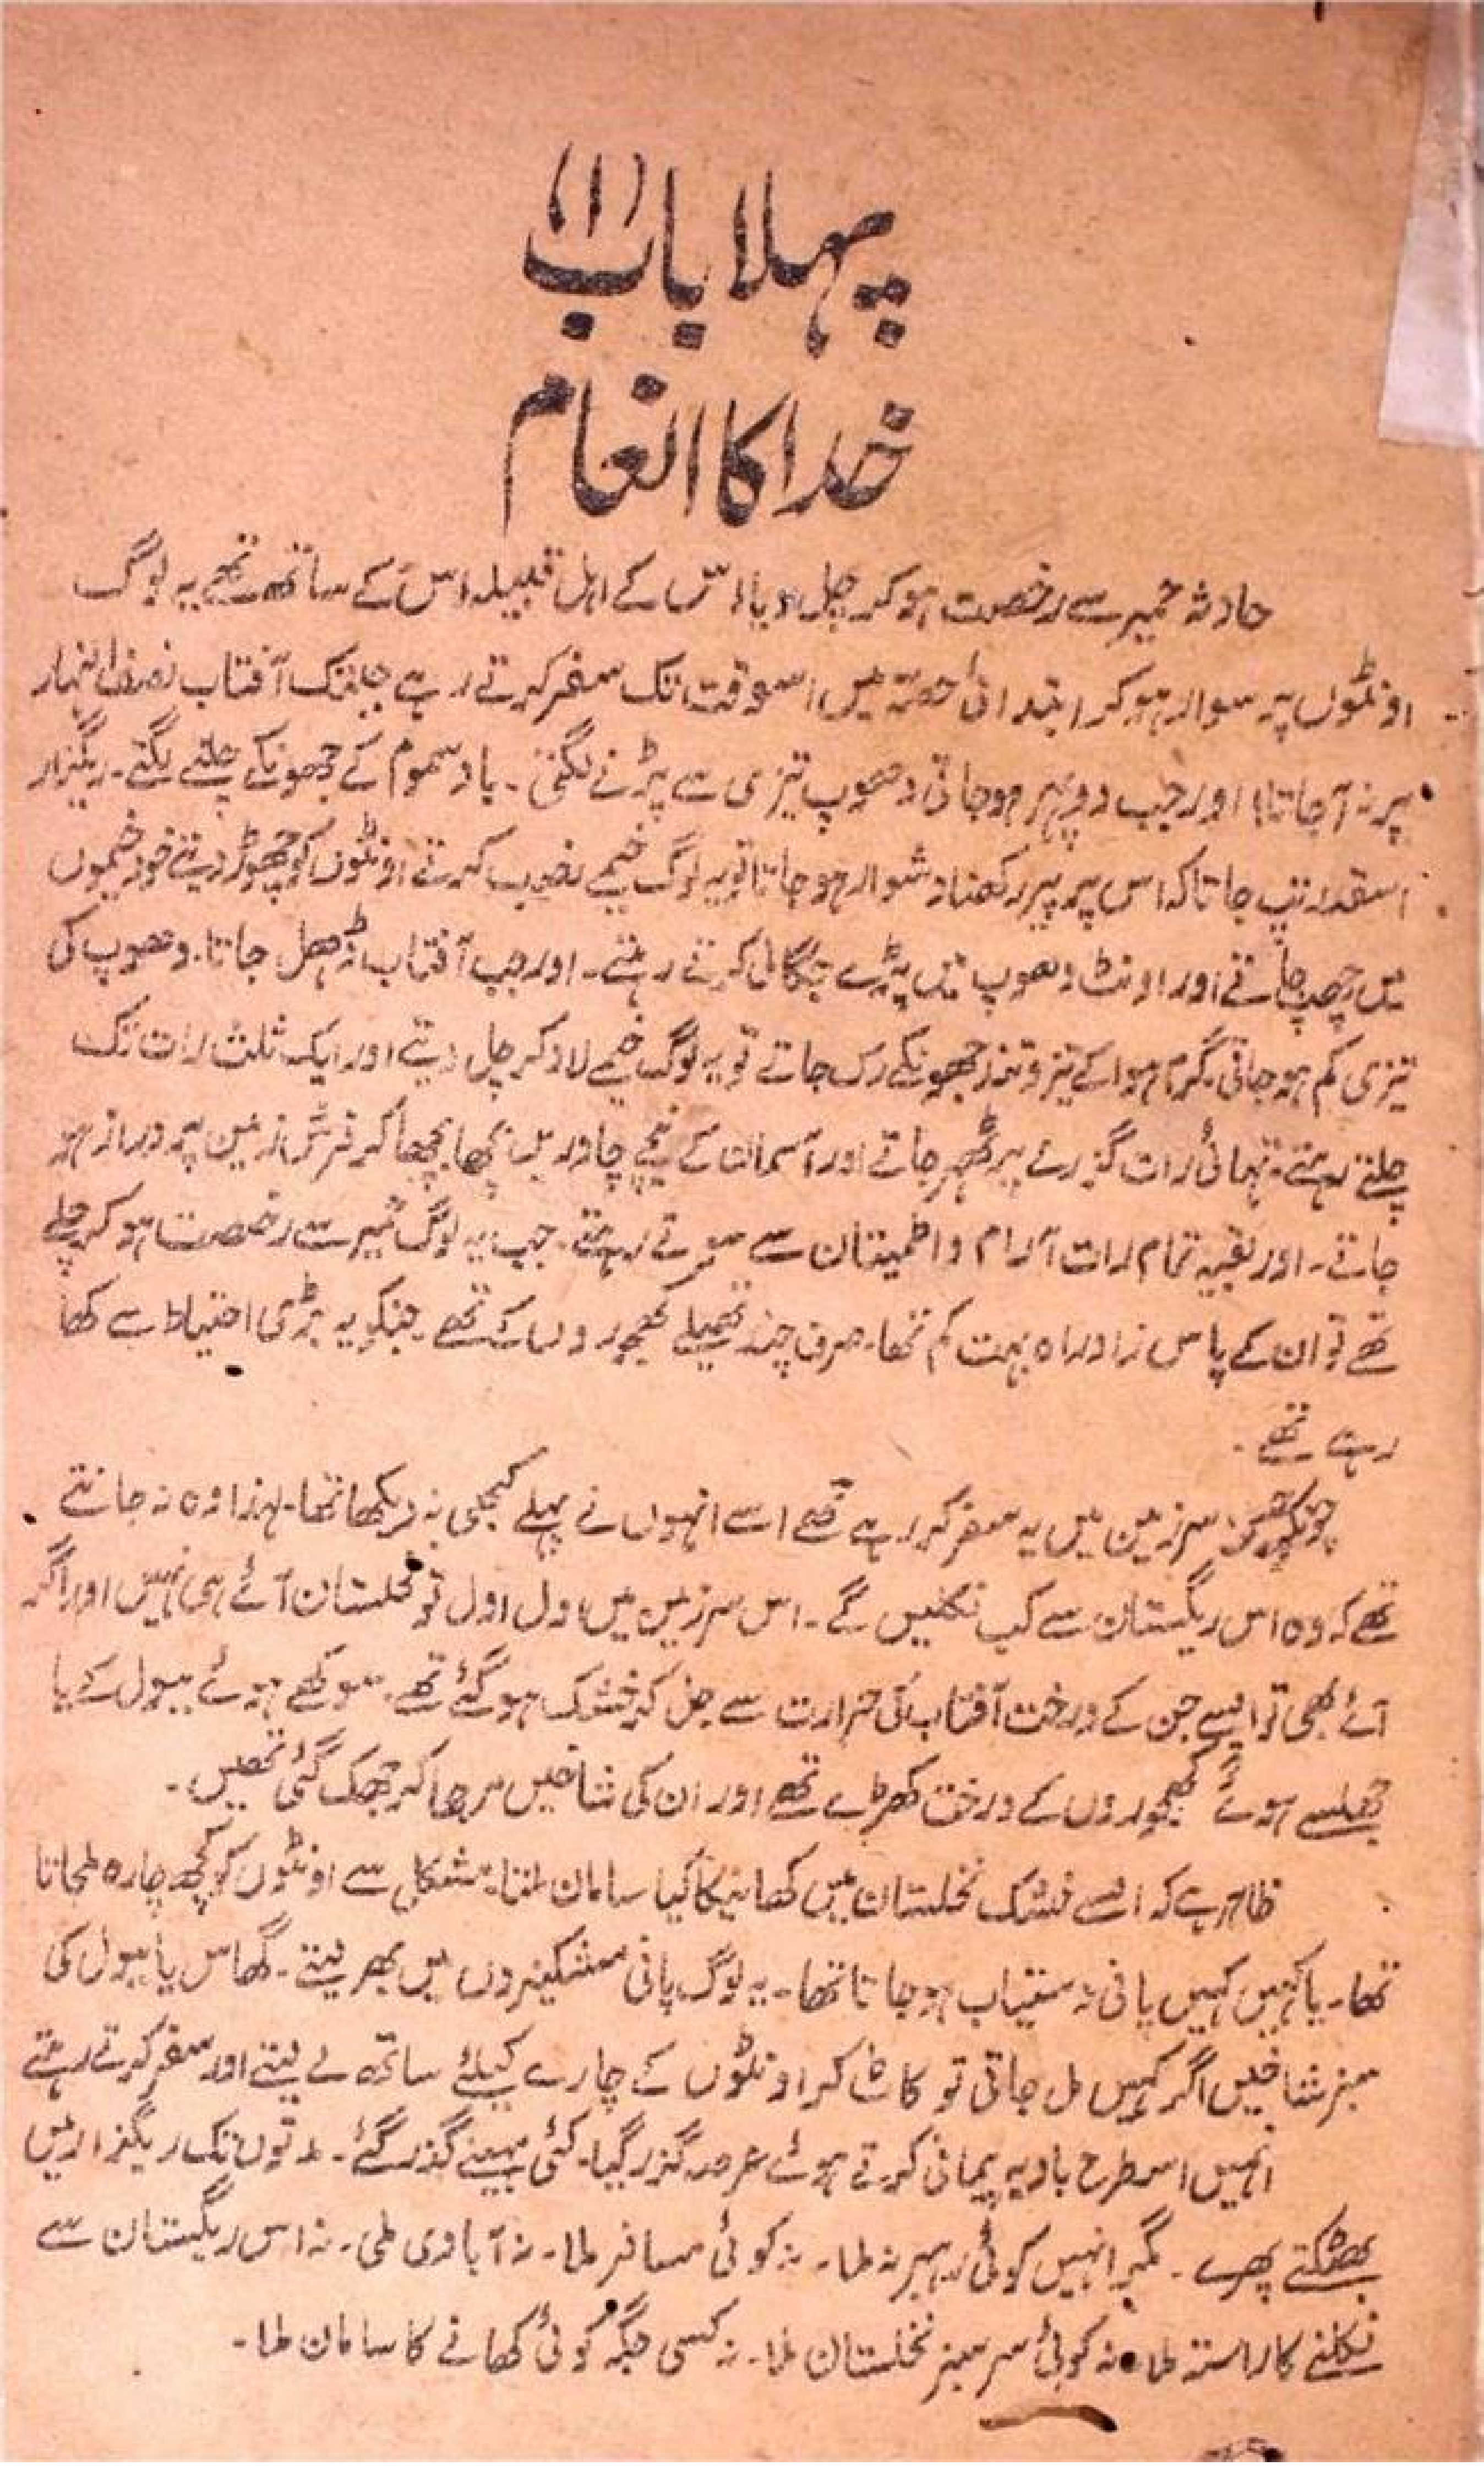 (۱)
پہلا باب
خدا کا انعام
حادثہ حمیر سے رخصت ہو کر چل دیا، اس کے اہل قبیلہ اس کے ساتھ تھے یہ لوگ
اونٹوں پر سوار ہو کر ابتدائی حصّہ میں اسوقت تک سفر کرتے رہے جبتک آفتاب نصف النہار
پر نہ آجاتا، اور جب دوپہر ہو جاتی دھوپ تیزی سے پڑنے لگتی۔ باد سموم کے جھونکے چلنے لگتے۔ ریگزار
اسقدر تپ جاتا کہ اس پر پیر رکھنا دشوار ہو جاتا تو یہ لوگ خیمے نصب کرتے اونٹوں کو چھوڑ دیتے خود خیموں
میں چھپ جاتے اور اونٹ دھوپ میں پڑے جگالی کرتے رہتے۔ اور جب آفتاب ڈھل جاتا۔ دھوپ کی
تیزی کم ہو جاتی گرم ہوا کے تیز و تند جھونکے رک جاتے تو یہ لوگ خیمے لاد کر چل دیتے اور ایک ثلث رات تک
چلتے رہتے۔ تہائی رات گزرے پر ٹھہر جاتے اور آسمان کے نیچے چادریں بچھا بچھا کر فرش زمین پر دراز ہو
جاتے۔ اور بقیہ تمام رات آرام و اطمینان سے سوتے رہتے۔ جب یہ لوگ حمیر سے رخصت ہو کر چلے
تھے تو ان کے پاس زاد راہ بہت کم تھا۔ صرف چند تھیلے کھجوروں کے تھے جنکو یہ بڑی احتیاط سے کھا
رہے تھے۔
چونکہ جس سرزمین میں یہ سفر کر رہے تھے اسے انہوں نے پہلے کبھی نہ دیکھا تھا۔ لہذا وہ نہ جانتے
تھے کہ وہ اس ریگستان سے کب نکلیں گے۔ اس سرزمین میں اول اول تو نخلستان آئے ہی نہیں اور اگر
آئے بھی تو ایسے جن کے درخت آفتاب کی حرارت سے جل کر خشک ہو گئے تھے۔ سوکھے ہوئے ببول کے یا
جھلسے ہوئے کھجوروں کے درخت کھڑے تھے اور ان کی شاخیں مرجھا کر جھک گئی تھیں۔
ظاہر ہے کہ ایسے خشک نخلستان میں کھانیکا کیا سامان ملتا۔ مشکل سے اونٹوں کو کچھ چارہ ملجاتا
تھا۔ یا کہیں کہیں پانی دستیاب ہو جاتا تھا۔ یہ لوگ پانی مشکیزوں میں بھر لیتے۔ گھاس یا ببول کی
سبز شاخیں اگر کہیں مل جاتی تو کاٹ کر اونٹوں کے چارے کیلئے ساتھ لے لیتے اور سفر کرتے رہتے
انہیں اسطرح بادیہ پیمائی کرتے ہوئے عرصہ گزر گیا۔ کئی مہینے گذر گئے۔ مدتوں تک ریگزار میں
بھٹکتے پھرے۔ مگر انہیں کوئی رہبر نہ ملا۔ نہ کوئی مسافر ملا۔ نہ آبادی ملی۔ نہ اس ریگستان سے
نکلنے کا راستہ ملا، نہ کوئی سرسبز نخلستان ملا۔ نہ کسی جگہ کوئی کھانے کا سامان ملا۔